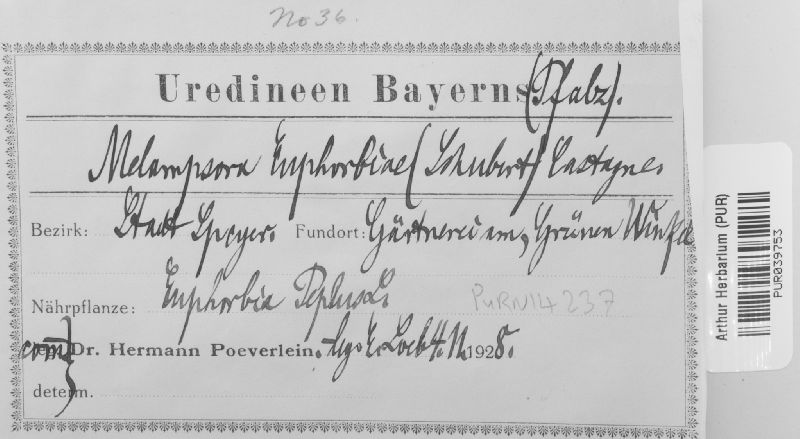 No 36.
Uredineen Bayerns (Pfalz).
Melampsora Euphorbiae (Schubert) Castagne.
Bezirk: Stadt Speyer. Fundort: Gärtnerei am „Grünen Winkel
Nährpflanze: Euphorbia Peplus L.
PURN14237
com. Dr. Hermann Poeverlein. leg. E. Loeb 4. 11. 1928.
determ.
Arthur Herbarium (PUR)
PUR039753